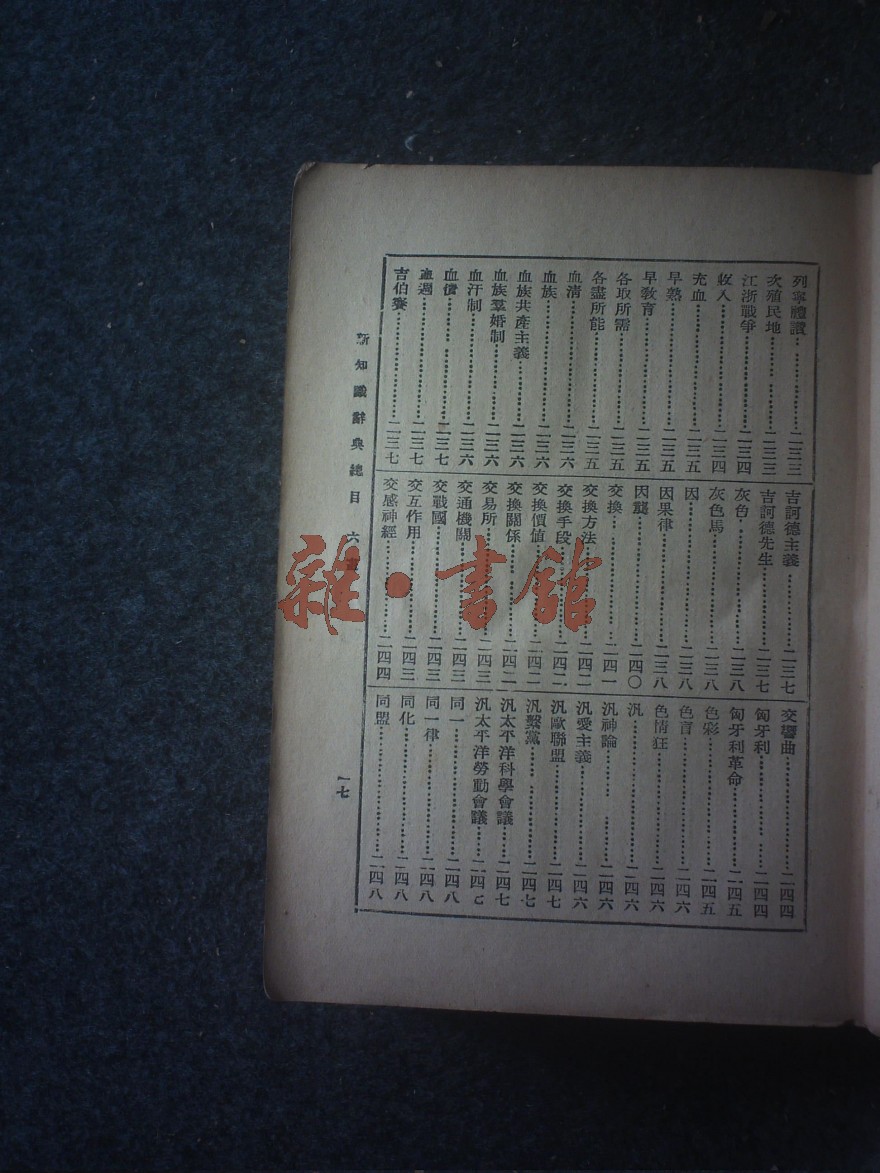 列寧禮讚……二三三
次殖民地……二三三
江浙戰爭……二三四
收入……二三四
充血……二三五
早熟……二三五
早教育……二三五
各取所需……二三五
各盡所能……二三五
血清……二三六
血族……二三六
血族共產主義……二三六
血族羣婚制……二三六
血汗制……二三六
血債……二三七
血週……二三七
吉伯賽……二三七
吉訶德主義……二三七
吉訶德先生……二三七
灰色……二三八
灰色馬……二三八
因……二三八
因果律……二三八
因襲……二四〇
交換……二四一
交換方法……二四二
交換手段……二四二
交換價値……二四二
交換關係……二四二
交易所……二四三
交通機關……二四三
交戰國……二四三
交互作用……二四三
交感神經……二四四
交響曲……二四四
匈牙利……二四四
匈牙利革命……二四五
色彩……二四五
色盲……二四六
色情狂……二四六
汎……二四六
汎神論……二四六
汎愛主義……二四六
汎歐聯盟……二四七
汎繫黨……二四七
汎太平洋科學會議……二四七
汎太平洋勞動會議……二四七
同一……二四八
同一律……二四八
同化……二四八
同盟……二四八
新知識辭典總目 六畫
一七
雜·書館